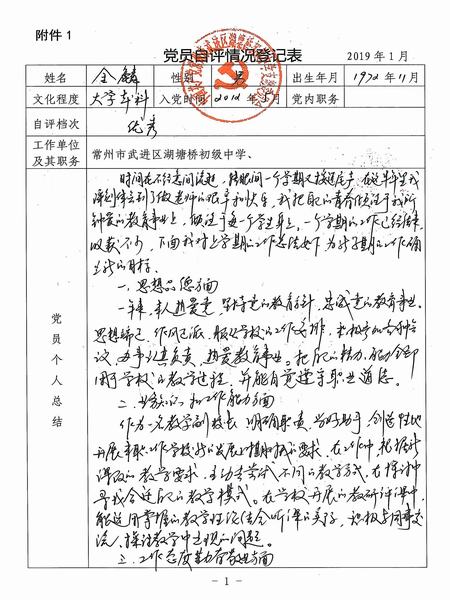 附件 1
党员自评情况登记表
2019 年 1 月
姓名 金 性别 男 出生年月 1972 年 11 月
文化程度 大学本科 入党时间 2012 年 5 月 党内职务
自评档次 优秀
工作单位及其职务 常州市武进区湖塘桥初级中学、
党员个人总结
时间在不经意间流逝，转眼间一个学期又接近尾声，在这半年里我
深刻体会到了做老师的艰辛和快乐，我把自己的青春倾注于我所
钟爱的教育事业上，倾注于每一个学生身上。一个学期的工作已经结束，
收获不少，下面我对上学期的工作总结如下，为新学期的工作确
立新的目标。
一、思想品德方面
一年来，本人热爱党，坚持党的教育方针，忠诚党的教育事业。
思想端正，作风正派，服从学校的工作安排，
办事认真负责，热爱教育事业。把自己的精力、能力全部
用于学校的教学过程，并能自觉遵守职业道德。
二、业务能力和工作能力方面
作为一名教学副校长，明确职责，当好助手，创造性地
开展本职工作，在工作中，根据新
课改的教学要求，主动去尝试不同的教学方式，在探讨中
寻找合适自己的教学模式。在学校开展的教研评课中，
能运用掌握的教学理论结合听课的实际，积极与同事交
流，探讨教学中出现的问题。
三、工作态度勤奋敬业方面
- 1 -